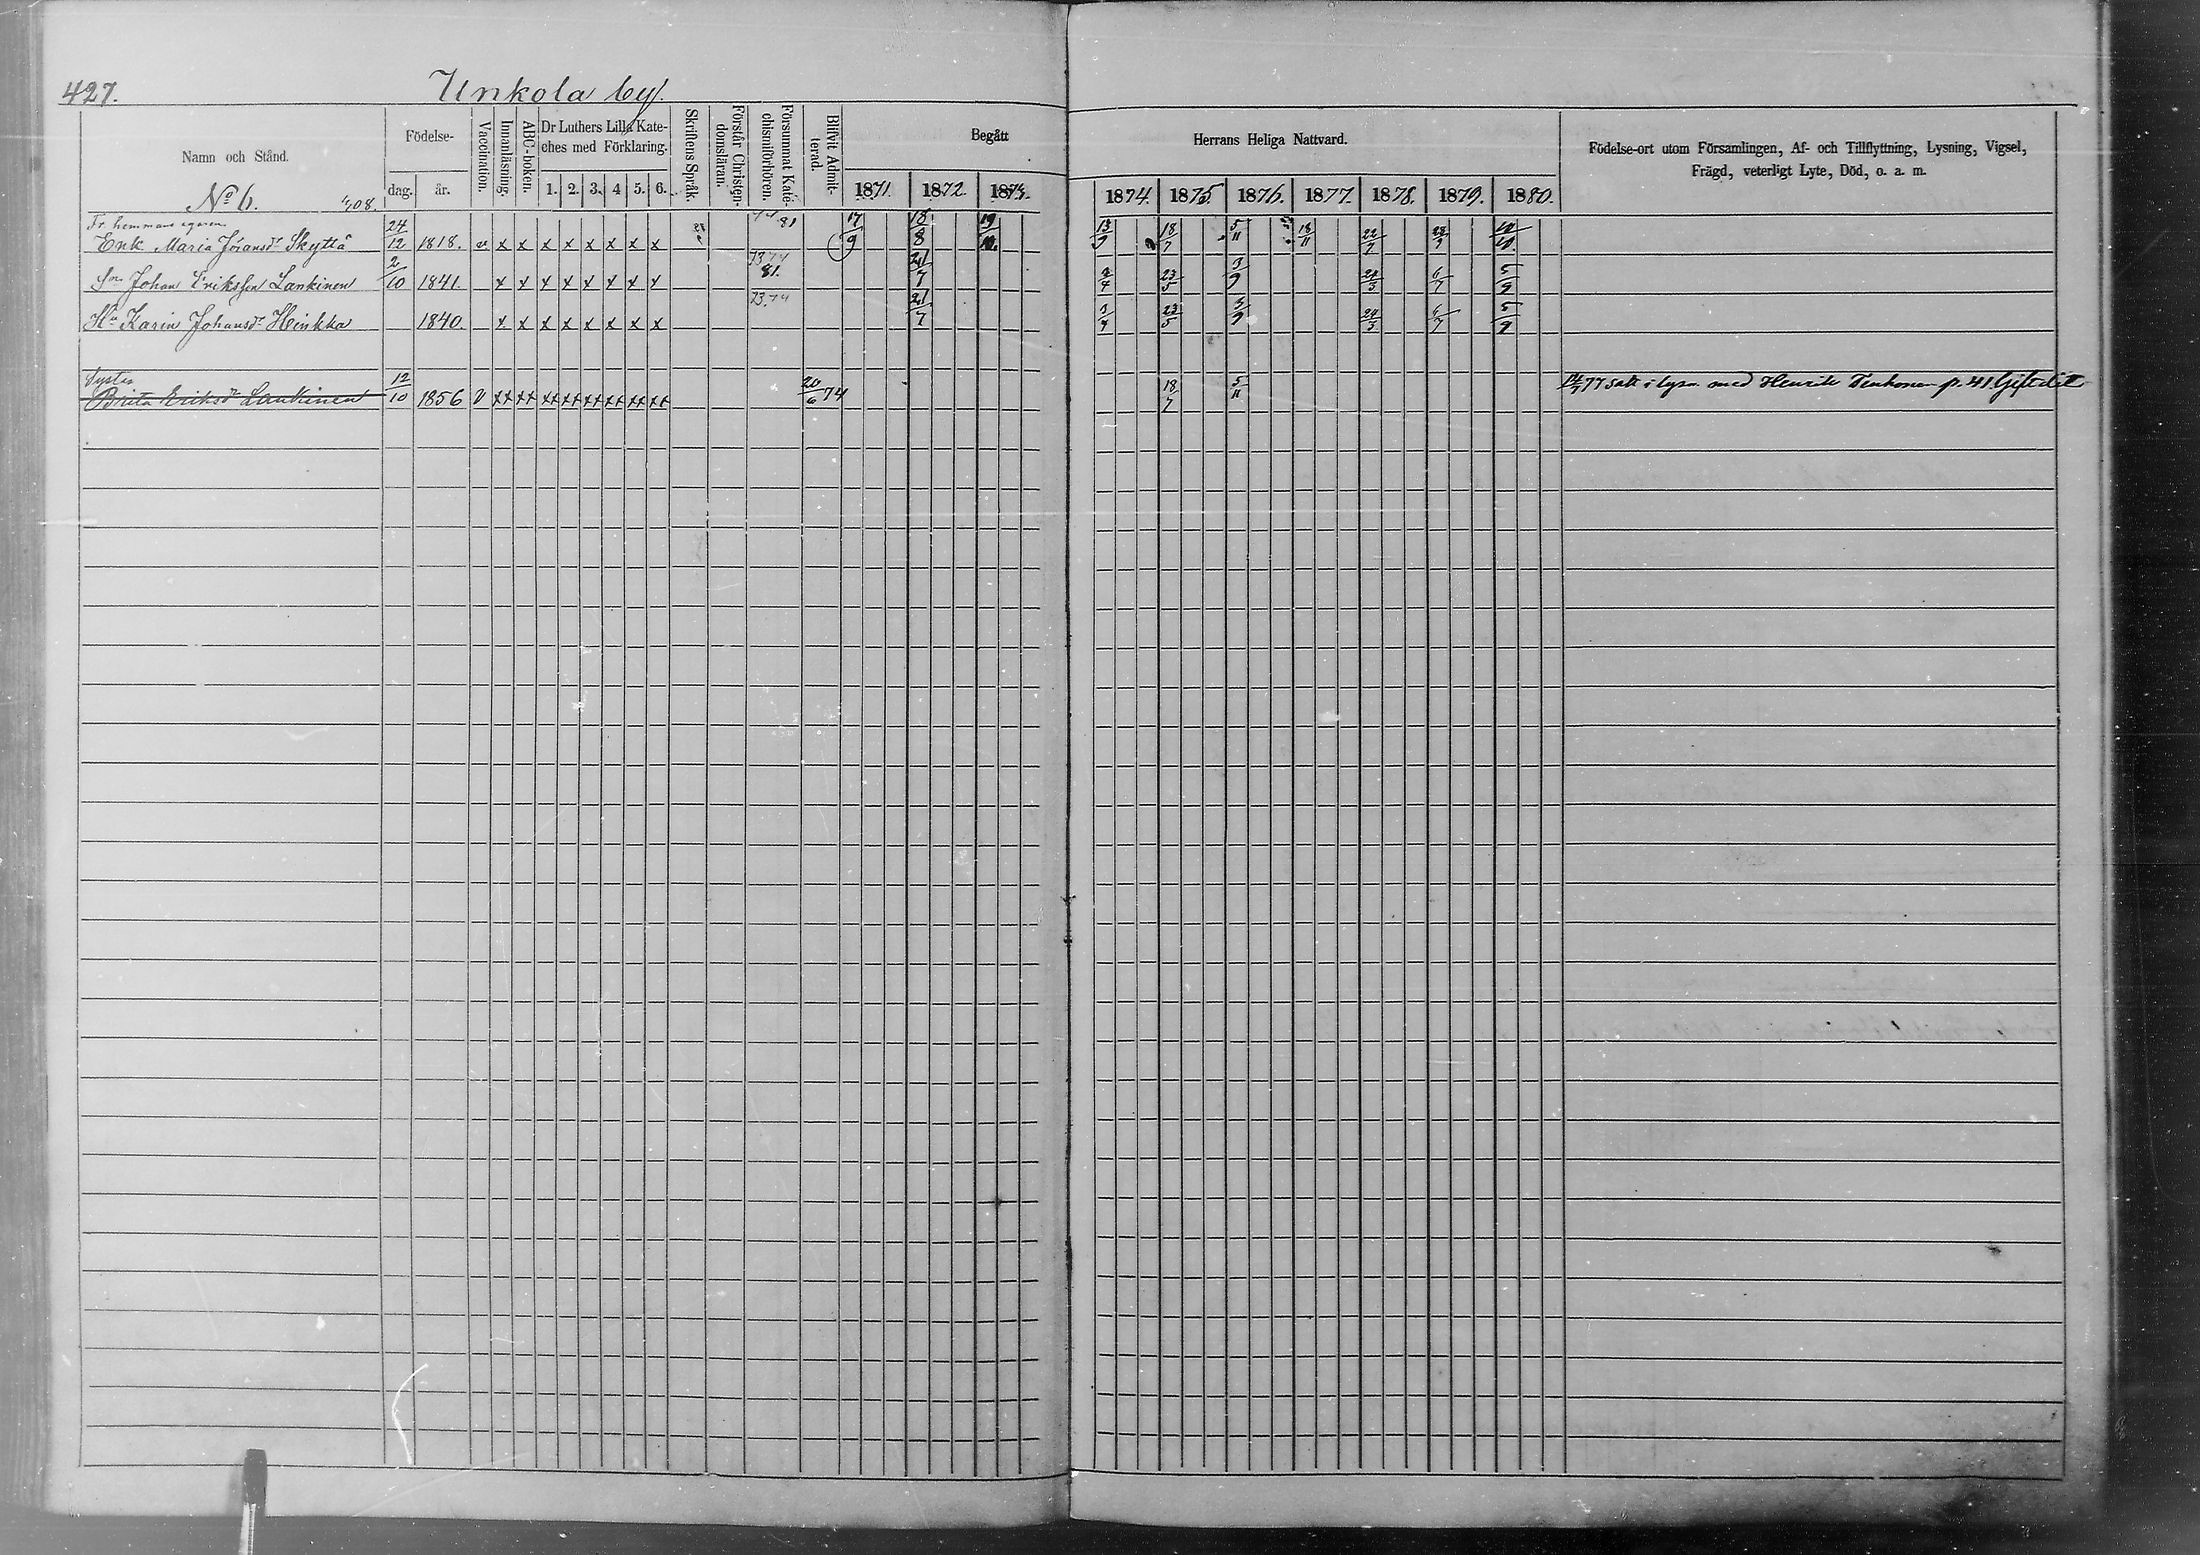 427.
Unkola by.
Namn och Stånd.
Födelse-
dag.
år.
Vaccination.
Innanläsning.
ABC-boken.
Dr Luthers Lilla Kate-
ches med Förklaring.
1. 2. 3. 4 5. 6.
Skriftens Språk.
Förstår Christen-
domsläran.
Försummat Kate-
chismiförhören.
Blifvit Admit-
terad.
Begått
1871. 1872. 1873.
Herrans Heliga Nattvard.
1874. 1875. 1876. 1877. 1878. 1879. 1880.
Födelse-ort utom Församlingen, Af- och Tillflyttning, Lysning, Vigsel,
Frägd, veterligt Lyte, Död, o. a. m.
No 6. 408.
Fr. hemmans egaren 24 81 17 18 19 13 18 5 18 22
Enk. Maria Jöransdr Skyttä 12 1818. v x x x x x x x x 9 8 10. 9 7 11 11 7
Sn Johan Eriksson Lankinen 2/10 1841. x x x x x x x x 73 74 81. 21/7 23/5 3/9 24/3 6/7 5/9
Hu Karin Johansdr Heinkka 1840. x x x x x x x x 73. 74 21/7 23/5 3/9 24/3 6/7 5/9
Syster
Brita Eriksdr Lankinen 12/10 1856 v xx xx xx xx xx xx xx xx 20/6 74 18/7 5/11 77 satt i lysn. med Henrik Tenhonen p. 41 Gift dit